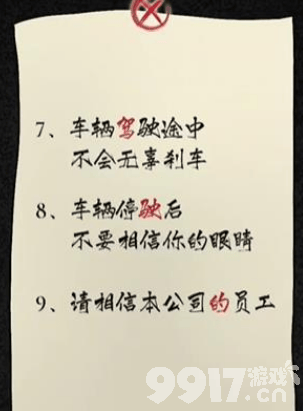 7、车辆驾驶途中
不会无辜刹车
8、车辆停驶后
不要相信你的眼睛
9、请相信本公司的员工
9917游戏
.cn